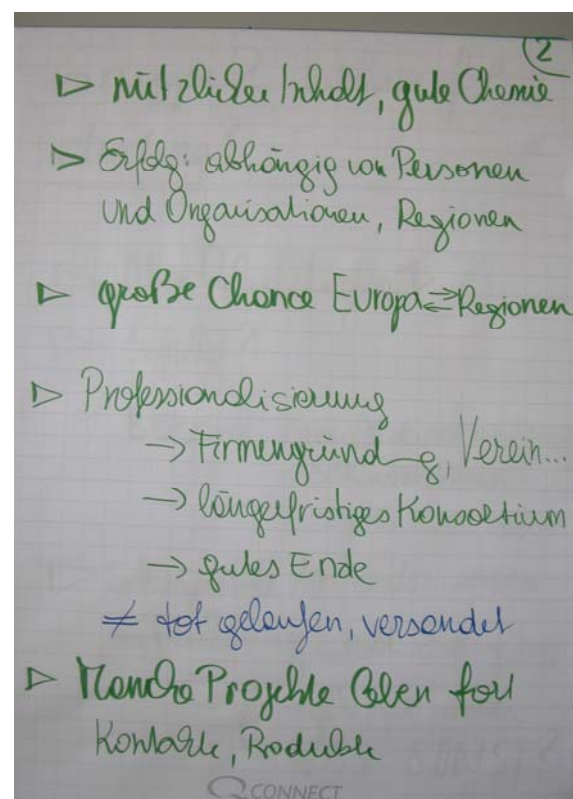 2
▷ nützlicher Inhalt, gute Chemie
▷ Erfolg: abhängig von Personen
und Organisationen, Regionen
▷ große Chance Europa ⇄ Regionen
▷ Professionalisierung
→ Firmengründg, Verein...
→ längerfristiges Konsortium
→ gutes Ende
≠ tot gelaufen, versandet
▷ Manche Projekte leben fort
Kontakte, Produkte
Q CONNECT